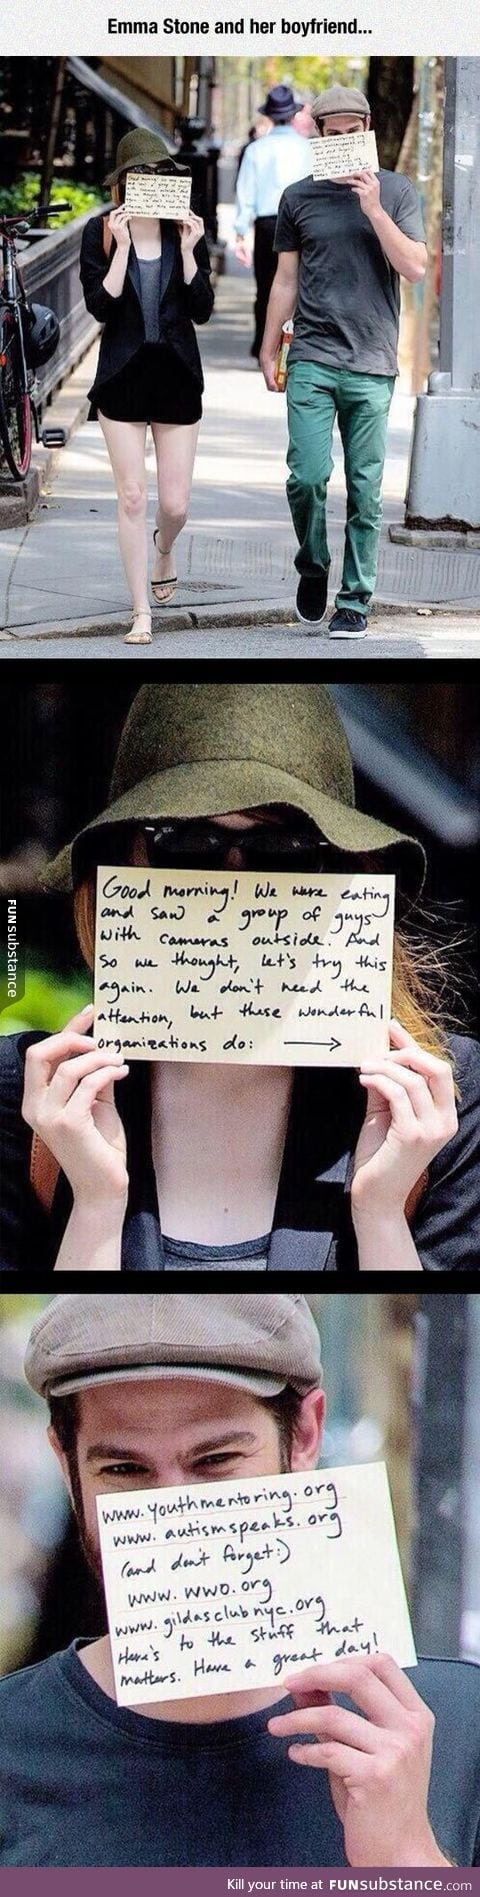 Emma Stone and her boyfriend...
Good morning! We were eating
and saw a group of guys
with cameras outside. And
So we thought, let's try this
again. We don't need the
attention, but these wonderful
organizations do: →
FUNsubstance
www.youthmentoring.org
www.autismspeaks.org
(and don't forget:)
www.wwo.org
www.gildasclubnyc.org
Here's to the stuff that
matters. Have a great day!
Kill your time at FUNsubstance.com